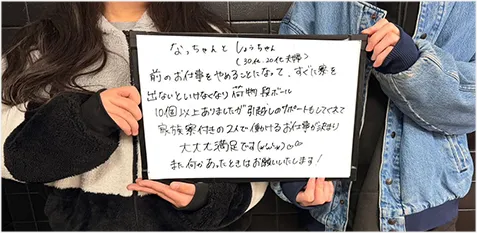 なっちゃんと しょうちゃん
(30代、20代夫婦)
前のお仕事をやめることになって、すぐに寮を
出ないといけなくなり荷物段ボール
10個以上ありましたが引越しのサポートもしてくれて
家族寮付きの2人で働けるお仕事が決まり
大大大満足です(*^ω^*)
また何かあったときはお願いいたします!